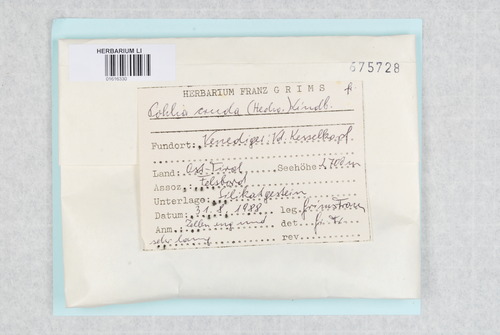 HERBARIUM LI
675728
HERBARIUM FRANZ GRIMS
Pohlia cruda (Hedw.) Lindb.
Fundort: Venediger: Kd. Kesselkopf
Land: Ost-Tirol Seehöhe: 2700m
Assoz. Felsband
Unterlage: Silikatgestein
Datum: 31.8.1988 leg.
Anm. Zellen eng und det.
sehr lang rev.